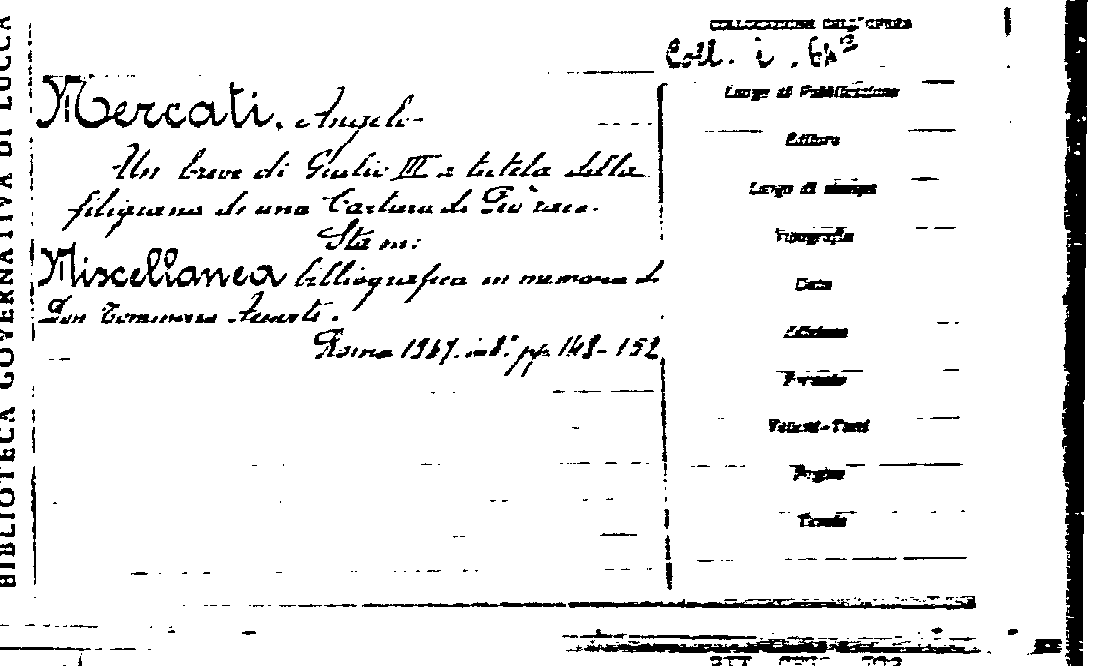 BIBLIOTECA GOVERNATIVA DI LUCCA
COLLOCAZIONE DELL'OPERA
Coll. i. 64²
Mercati, Angelo
Un breve di Giulio III a tutela della
filigrana di una Cartara di
Sta in:
Miscellanea bibliografica in memoria di
Don Tommaso
Roma 1947. in 8.° pp. 148-152
Luogo di Pubblicazione
Editore
Luogo di stampa
Tipografia
Data
Edizione
Formato
Volumi-Tomi
Pagine
Tavole